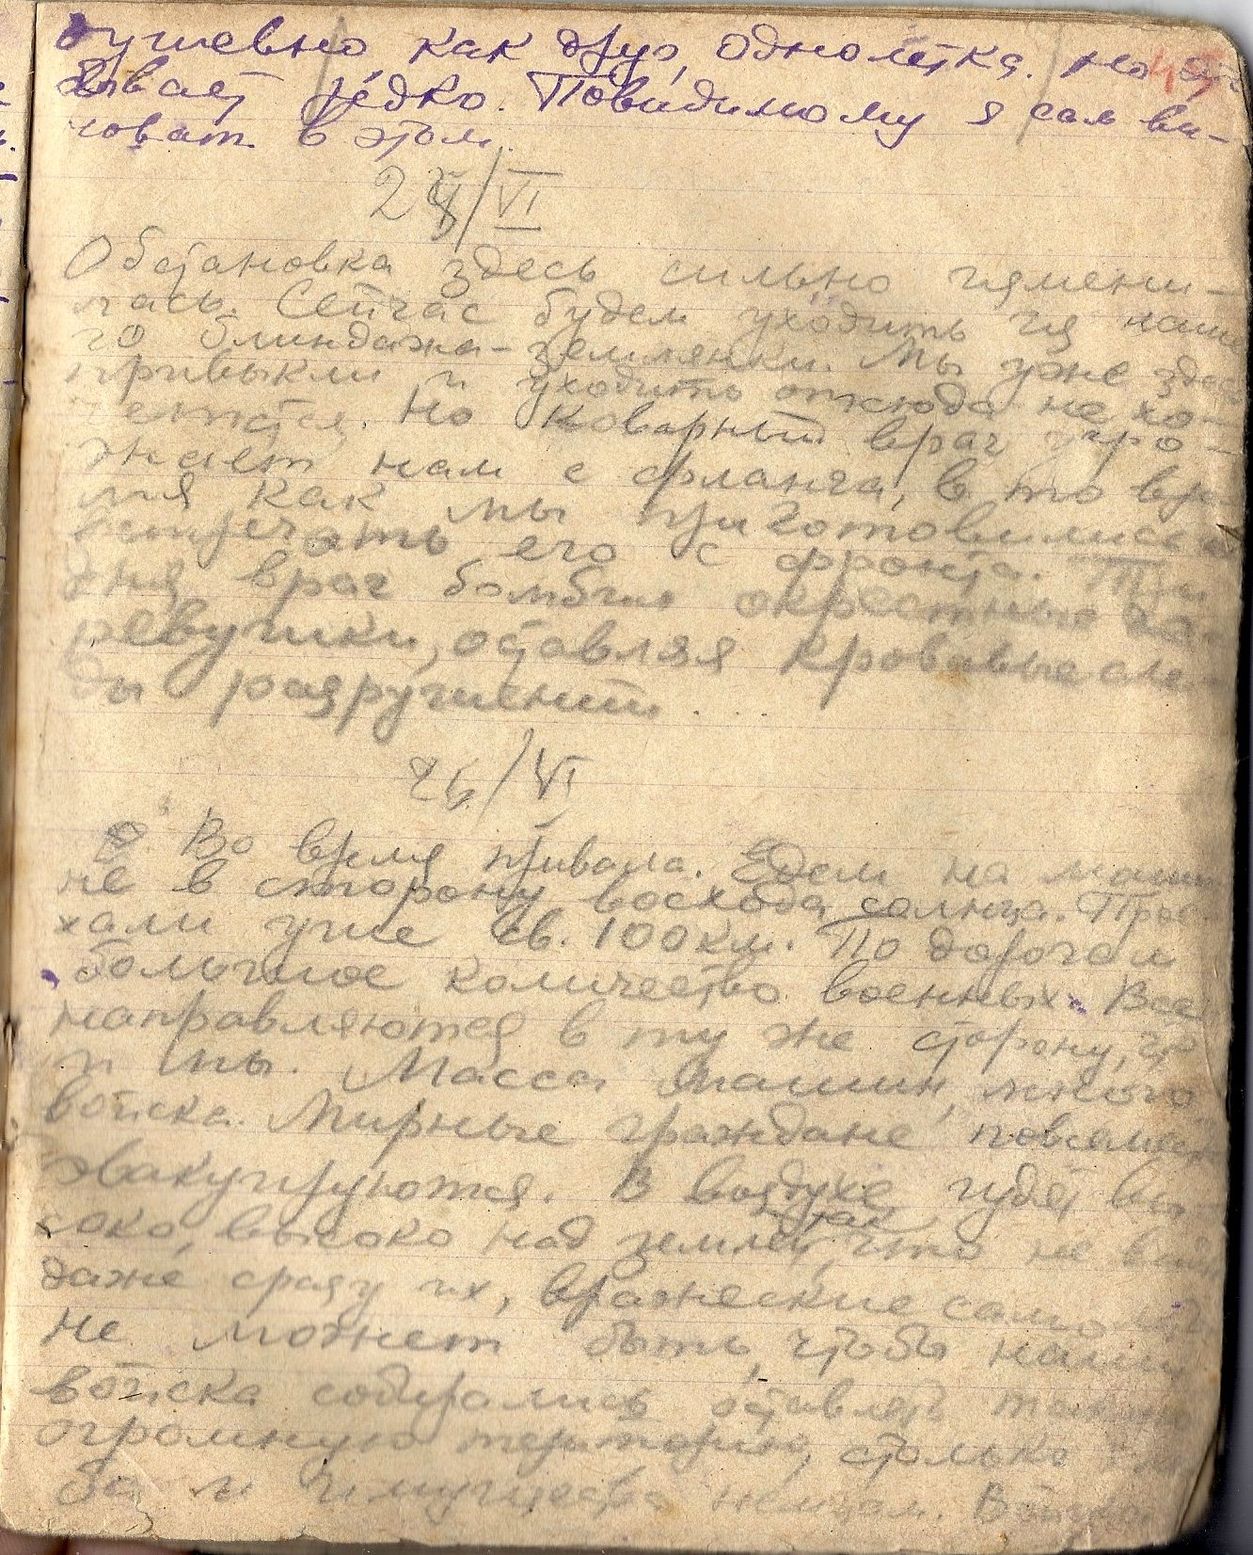 душевно как друг, однолетка. но это
бывает редко. Повидимому я сам ви-
новат в этом.
45
24/VI
Обстановка здесь сильно измени-
лась. Сейчас будем уходить из наше
го блиндажа-землянки. Мы уже здесь
привыкли и уходить отсюда не хо-
чется. Но коварный враг угро-
жает нам с фланга, в то вре
мя как мы приготовились
встречать его с фронта. Три
дня враг бомбил окрестные де-
ревушки, оставляя кровавые сле-
ды разрушений...
26/VI
Во время привала. Едем на маши
не в сторону восхода солнца. Прое
хали уже св. 100км. По дорогам
большое количество военных. Все
направляются в ту же сторону, что
и мы. Масса машин, много
войска. Мирные граждане повсемест
эвакуируются. В воздухе гудят вы-
соко, высоко над землей, так что не видн
даже сразу их, вражеские самолет
Не может быть, чтобы наши
войска собирались оставлять такую
огромную территорию, столько хле
ба и имущества немцам. Войска